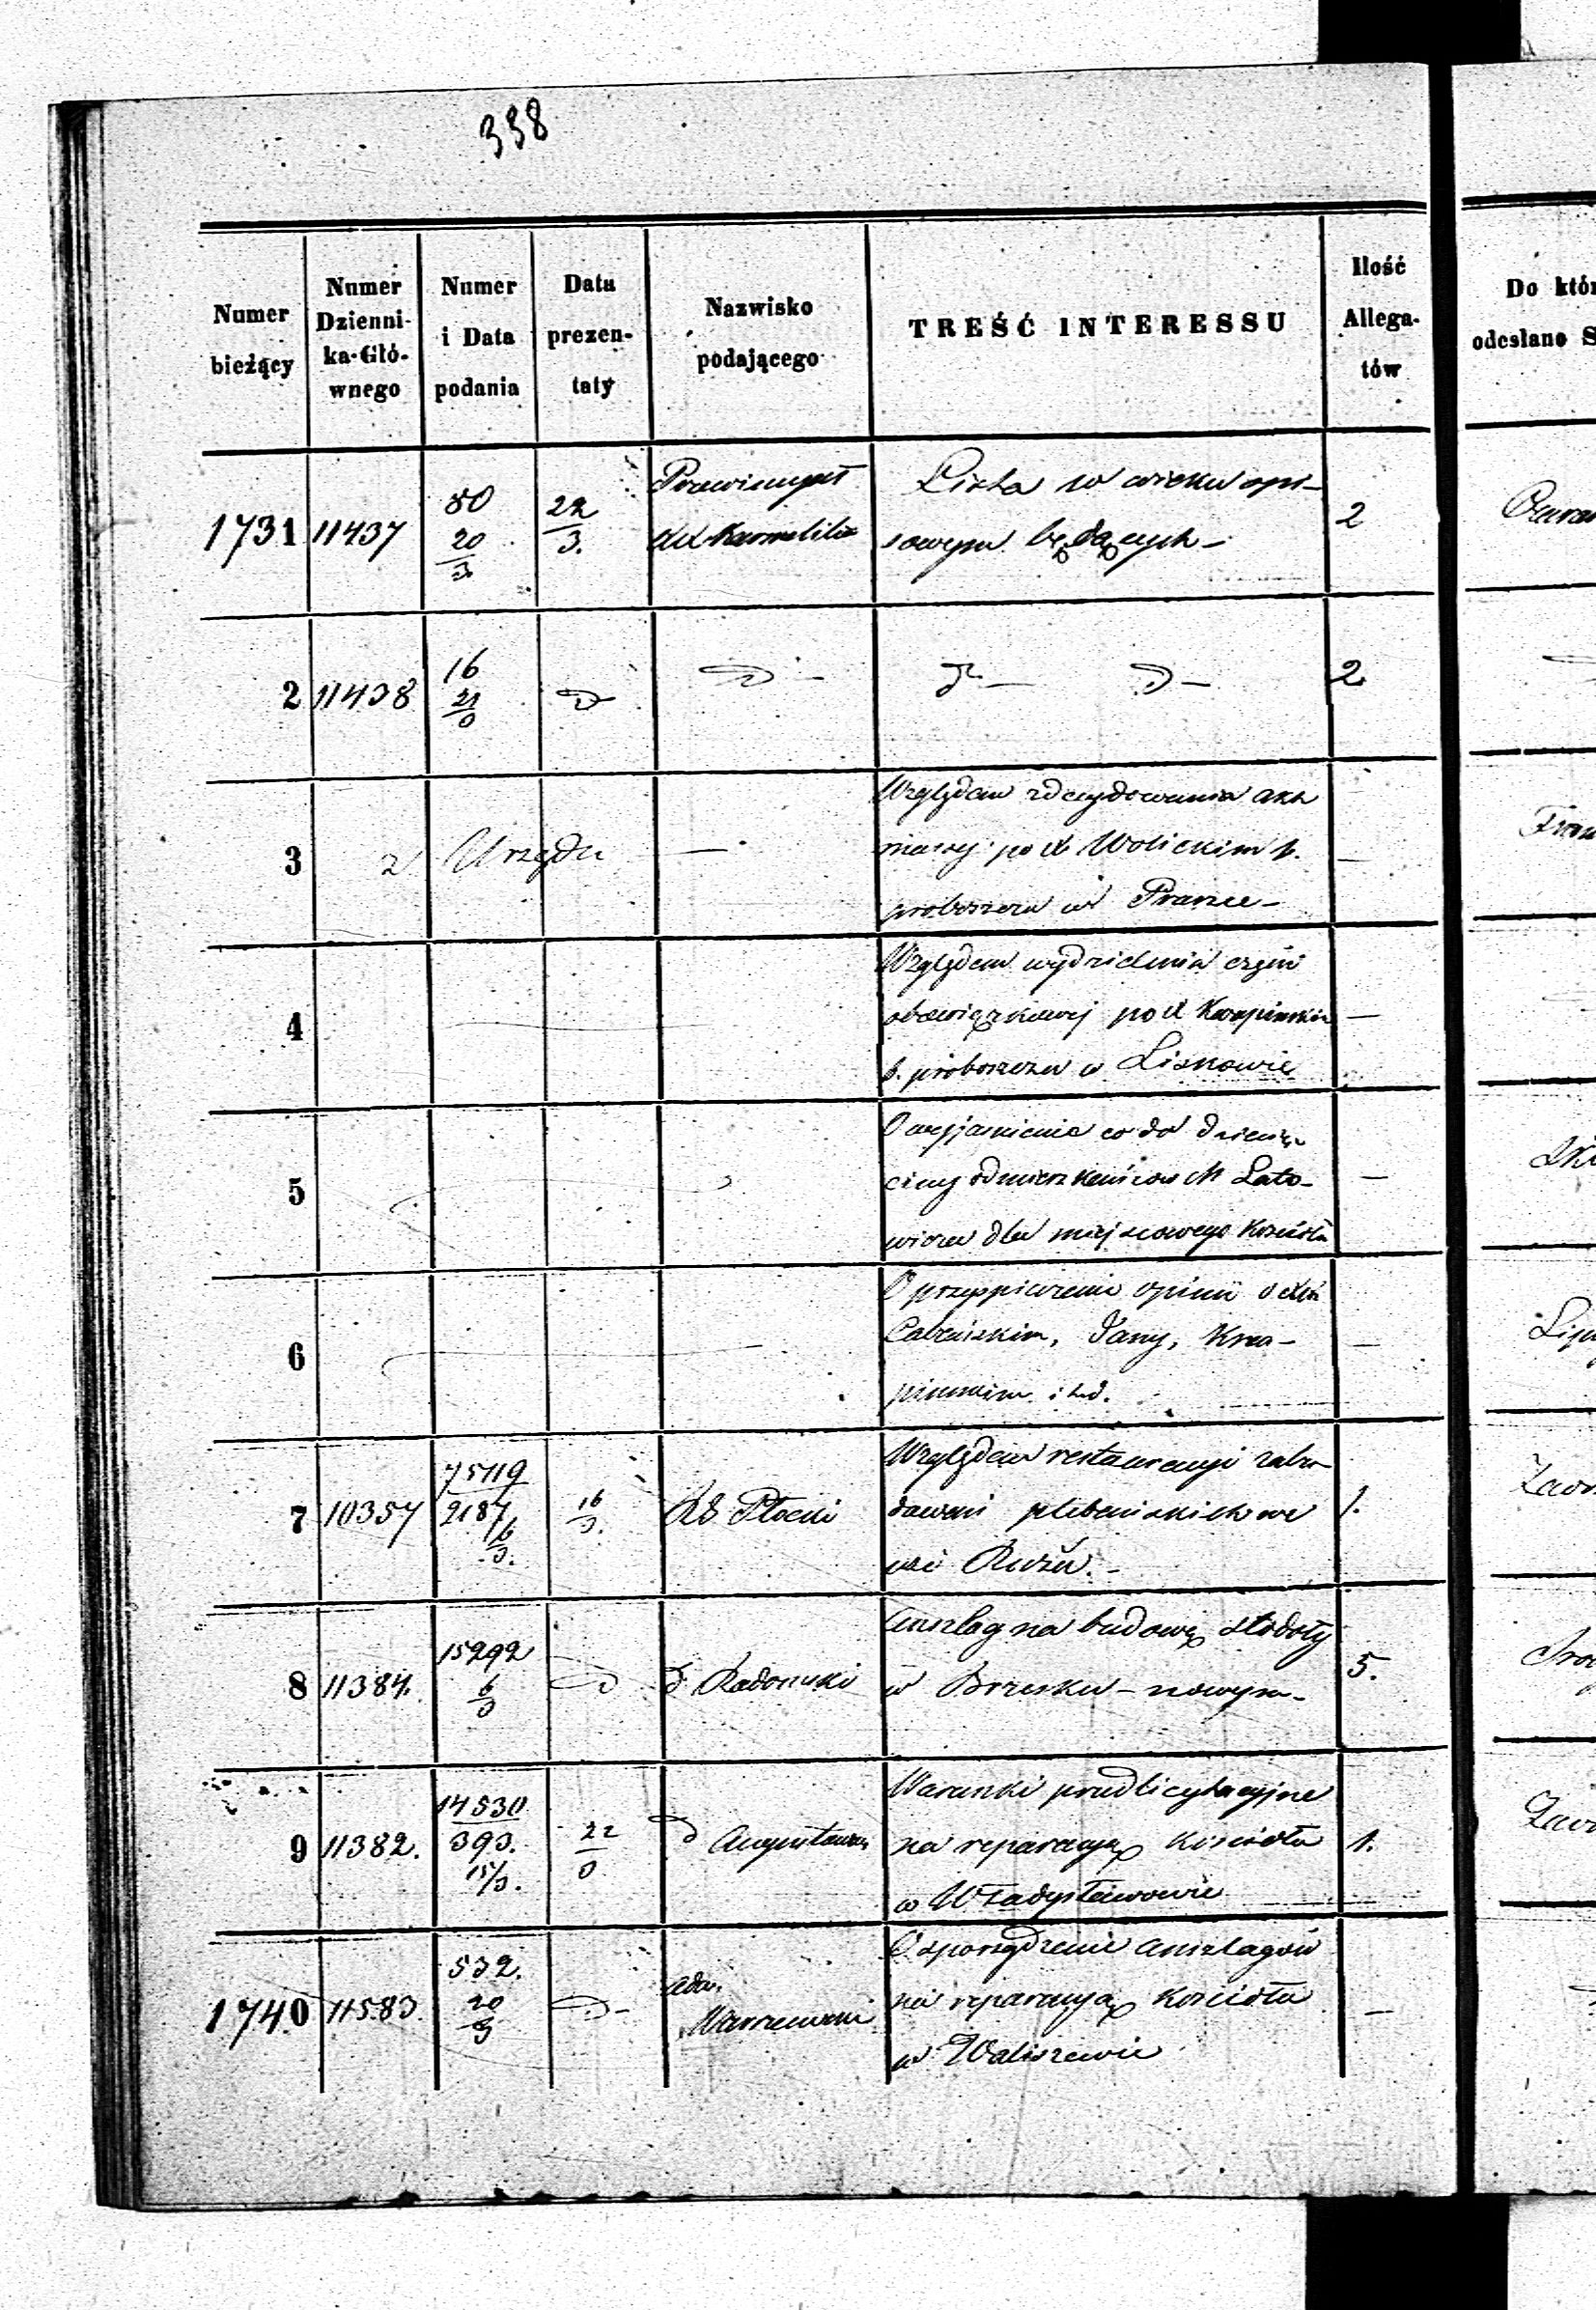 338
Numer bieżący | Numer Dzienni-ka-Głó-wnego | Numer i Data podania | Data prezen-taty | Nazwisko podającego | TREŚĆ INTERESSU | Ilość Allega-tów | Do któr
odesłano S
1731 | 11437 | 80 20/3 | 22/3. | XX Karmelitów | Lista w wieku opi-
sowym będących – | 2
2 | 11438 | 16 21/3 | D | D – | D – D – | 2
3 | z Urzędu | — | Względem zdecydowania akt
massy po X Wolickim b.
proboszczu w Pranie – | —
4 | Względem wydzielenia części
obowiązkowej po X
b. proboszczu w Liskowie | —
5 | O wyjaśnienie co do dziesię-
ciny od mieszkańców M Lato-
wicza dla miejscowego Kościoła | —
6 | O przyspieszenie opinii o
pińskim itd. | —
7 | 10357 | 75119 2187 6/3. | 16/3. | RG Płocki | Względem restauracyi zabu-
dowań plebańskich we
wsi Ruże. – | 1.
8 | 11384. | 15292 6/3 | D | d Radomski | Anszlag na budowę stodoły
w Brzesku – nowym – | 5.
9 | 11382. | 14530 393. 15/3. | 22/3 | d Augustowski | Warunki przedlicytacyjne
na reparacyą kościoła
w Władysławowie | 1.
1740 | 11583. | 532. 20/3 | D – | Adm. Warszawski | O sporządzenie anszlagów
na reparacyą Kościoła
w Waliszewie | —